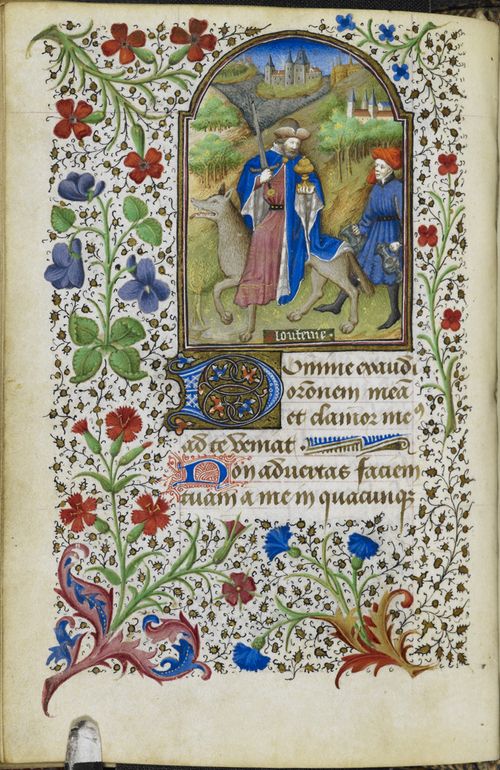 Domine exaudi
oro̅nem mea̅
et clamor meꝰ
ad te veniat
Non aduertas faciem
tuam a me in quacunqꝫ